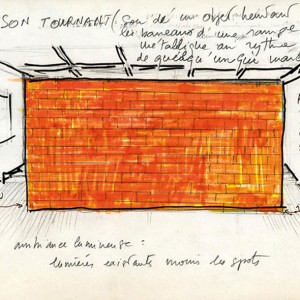 SON TOURNANT (son dû un objet heurtant
les barreaux d'une rampe
métallique au rythme
de quelqu'un qui marche
ambiance lumineuse :
lumières existantes moins les spots